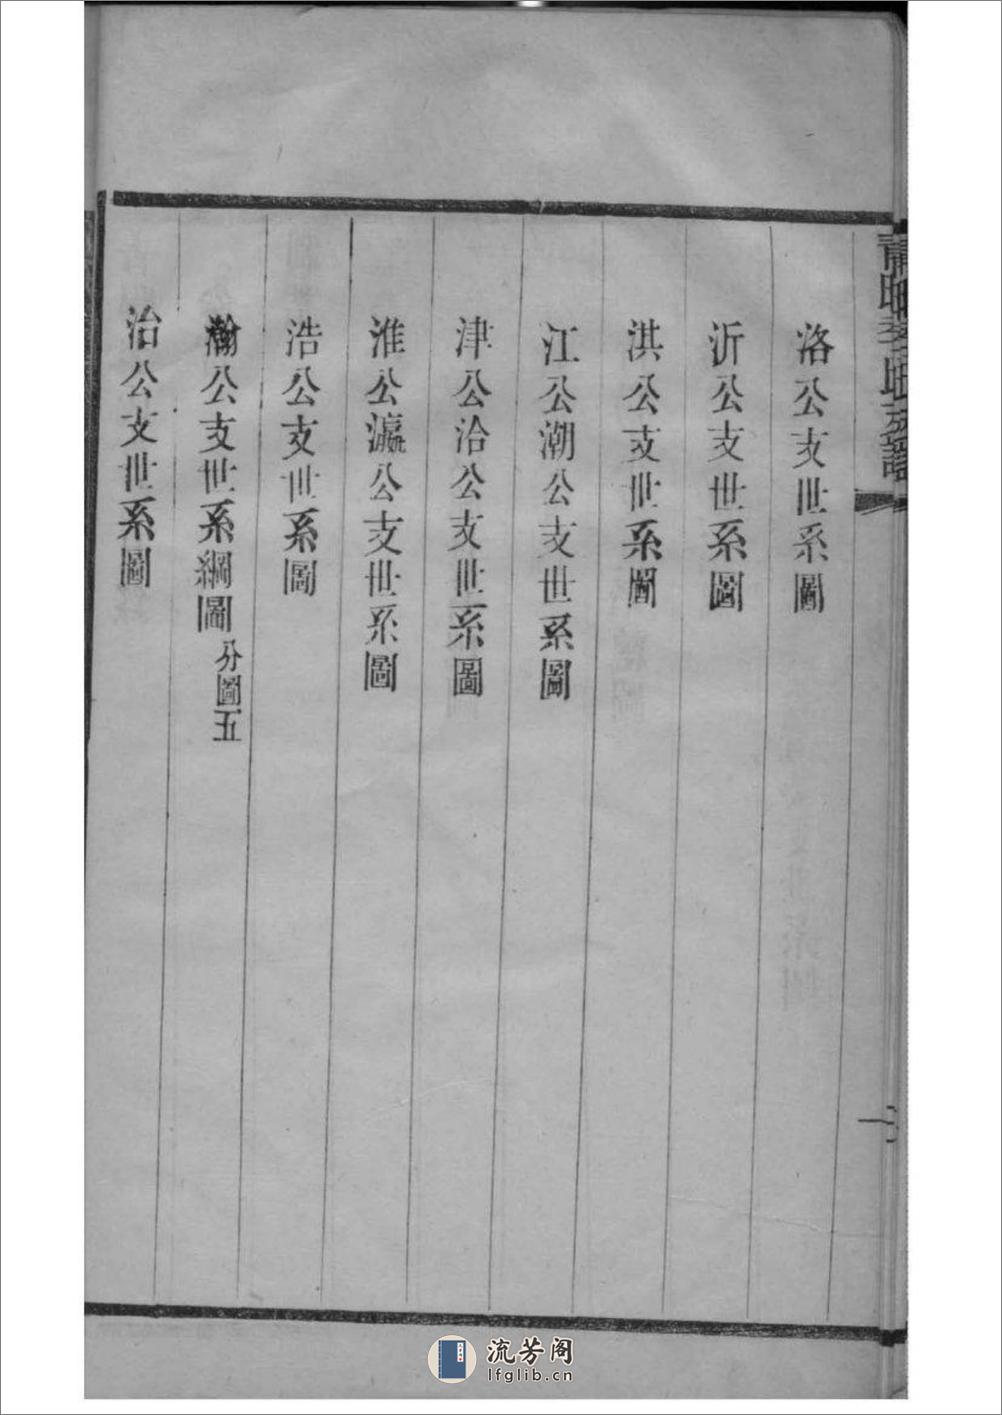 洛公支世系圖
沂公支世系圖
洪公支世系圖
江公潮公支世系圖
津公洽公支世系圖
淮公瀛公支世系圖
浩公支世系圖
瀚公支世系綱圖 分圖五
治公支世系圖
流芳阁
lfglib.cn